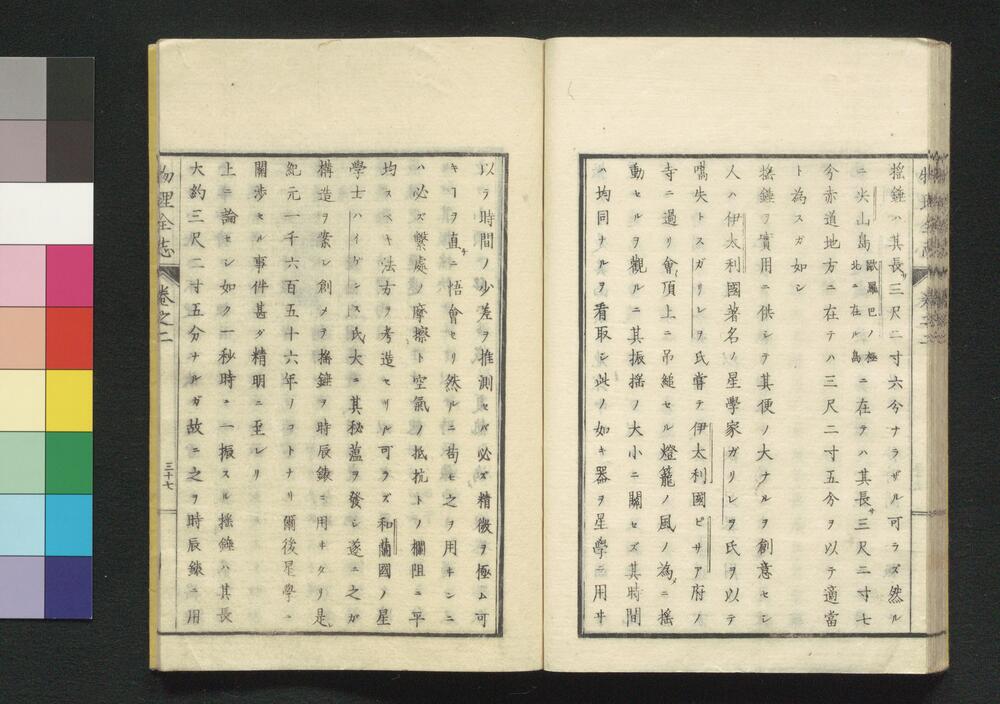 搖錘ハ其長サ三尺二寸六分ナラザル可ラズ然ル
ニ尖山島歐羅巴ノ極北ニ在ル島ニ在テハ其長サ三尺二寸七
分赤道地方ニ在テハ三尺二寸五分ヲ以テ適當
ト為スガ如シ
搖錘ヲ實用ニ供シテ其便ノ大ナルヲ創意セシ
人ハ伊太利國著名ノ星學家ガリレヲ氏ヲ以テ
嚆矢トスガリレヲ氏嘗テ伊太利國ピサア府ノ
寺ニ過リ會頂上ニ吊縋セル燈籠ノ風ノ為メニ搖
動セルヲ觀ルニ其振搖ノ大小ニ關セズ其時間
ハ均同ナルヲ看取シ此ノ如キ器ヲ星學ニ用ヰ
以テ時間ノ少差ヲ推測セバ必ズ精微ヲ極ム可
キヿヲ直チニ悟會セリ然ルニ苟モ之ヲ用キンニ
ハ必ズ繫處ノ摩擦ト空氣ノ抵抗トノ欄阻ニ平
均スベキ法方ヲ考造セリル可ラズ和蘭國ノ星
學士ハイゲンス氏大ニ其秘薀ヲ發シ遂ニ之ガ
構造ヲ案シ創メテ搖錘ヲ時辰錶ニ用キタリ是レ
紀元一千六百五十六年ノコトナリ爾後星學ニ
關渉セル事件甚ダ精明ニ至レリ
上ニ論セシ如ク一秒時ニ一振スル搖錘ハ其長
大約三尺二寸五分ナルガ故ニ之ヲ時辰錶ニ用
物理全志 卷之二 三十七